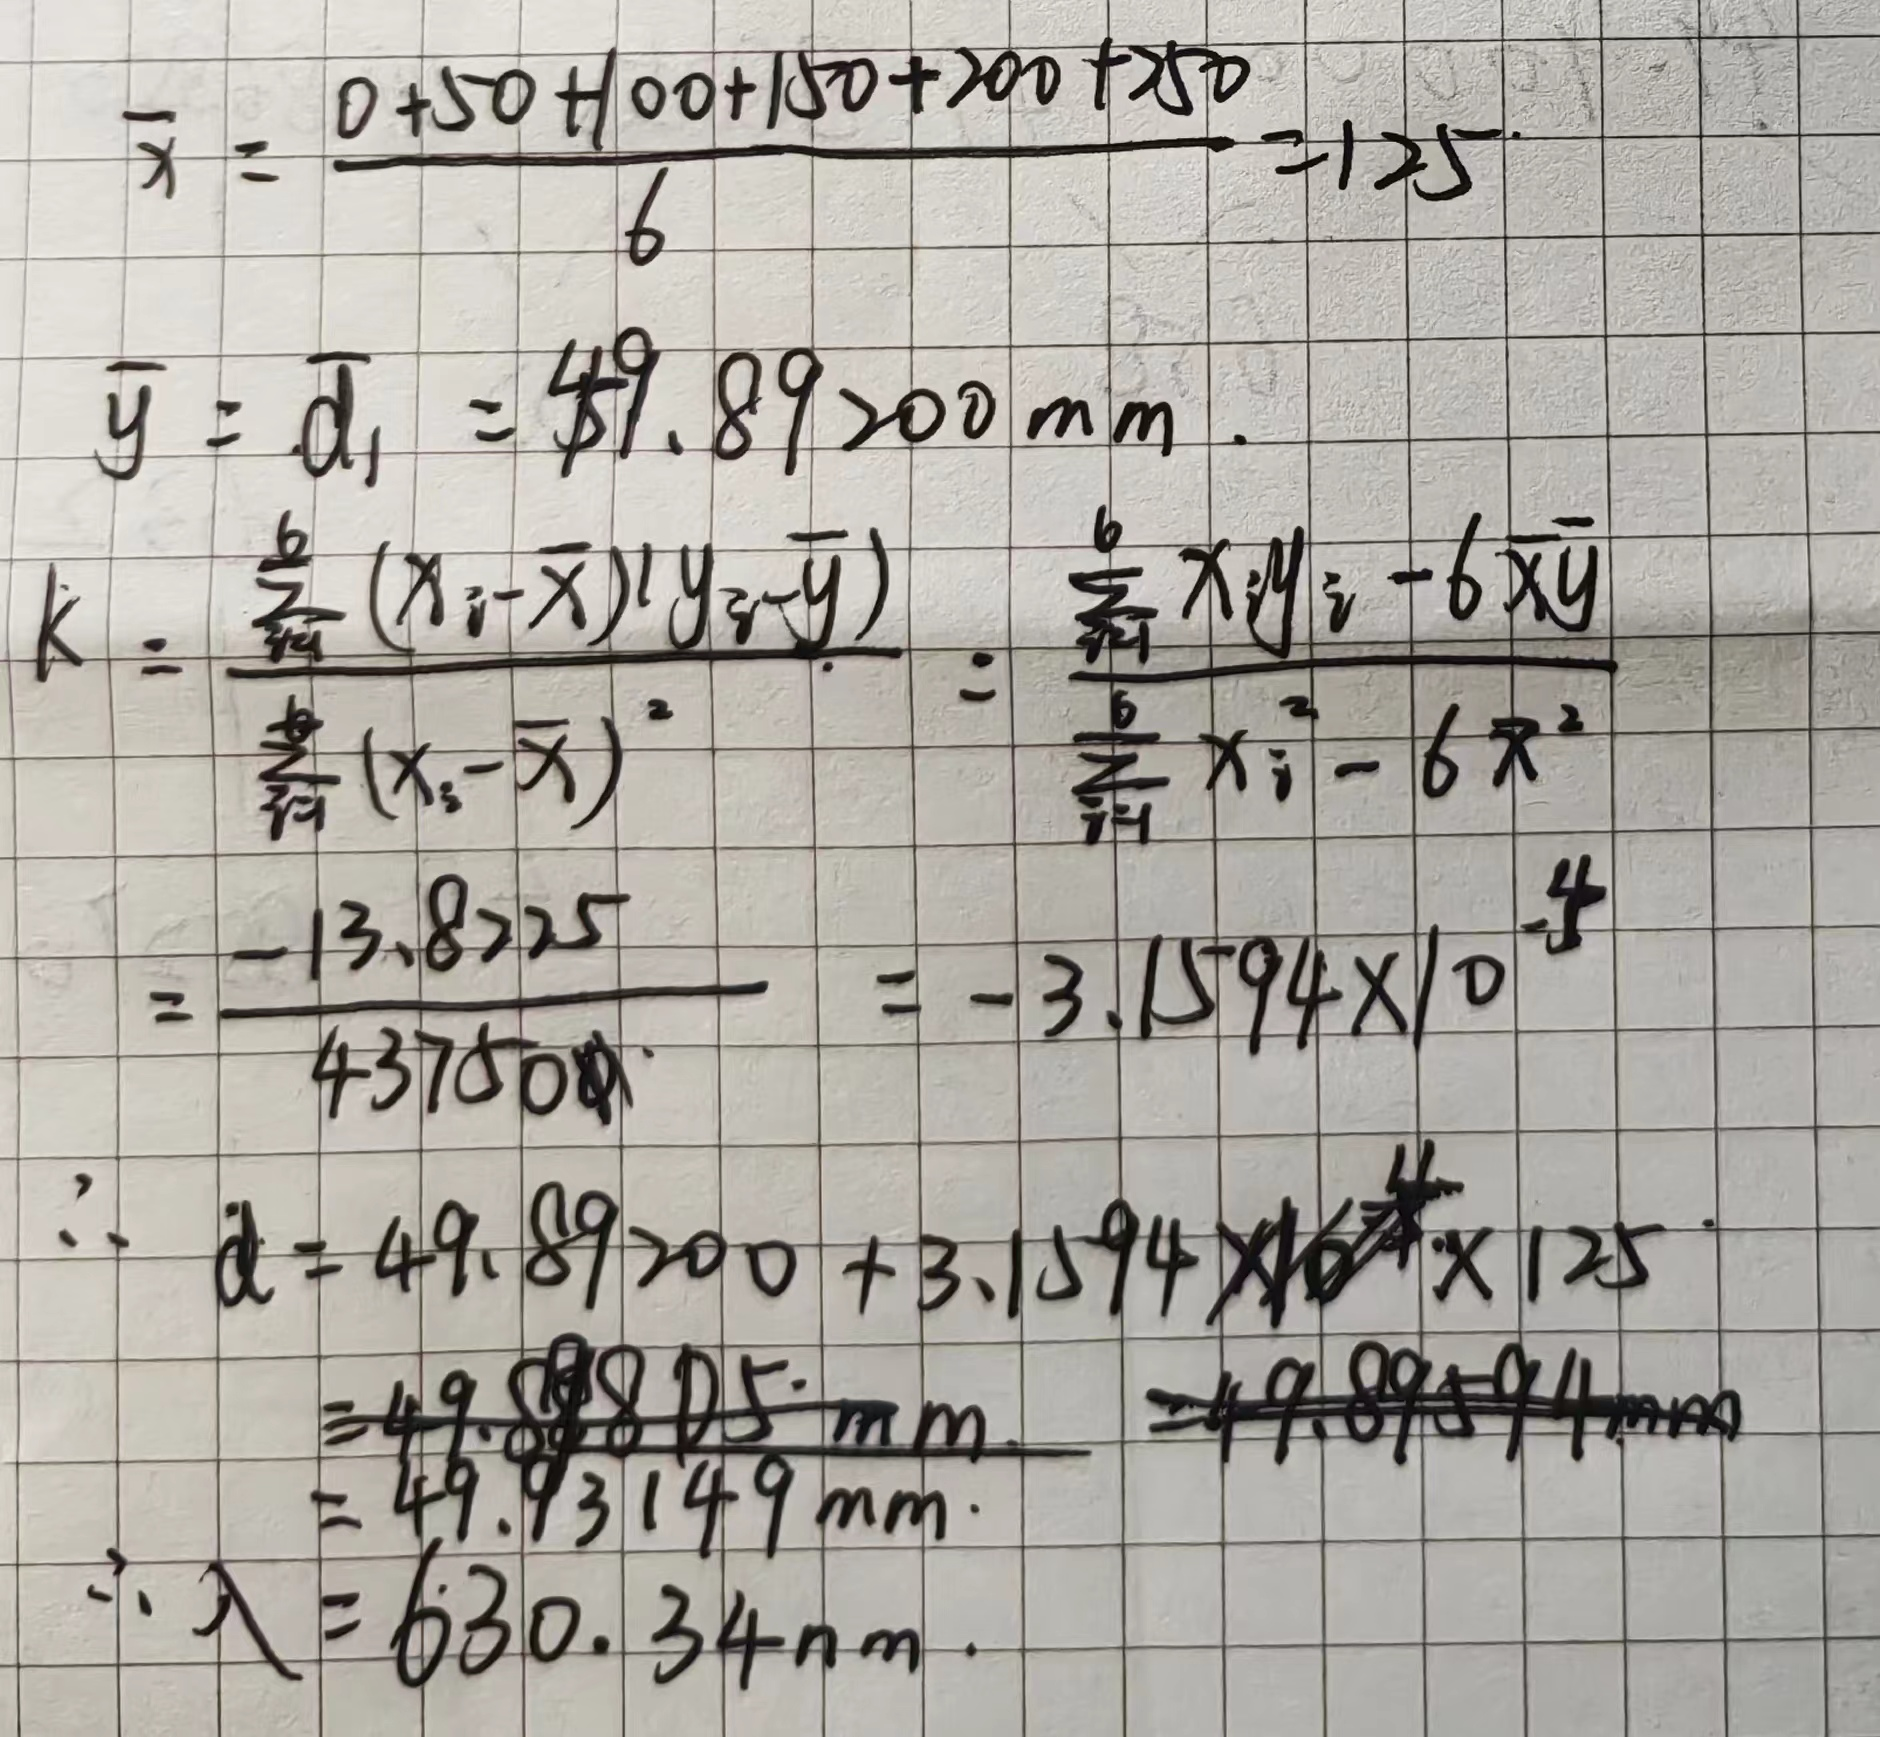 x̄ = (0+50+100+150+200+250)/6 = 125
ȳ = d̄₁ = 49.89200 mm.
k = ∑_{i=1}^{6}(x_i-x̄)(y_i-ȳ) / ∑_{i=1}^{6}(x_i-x̄)² = (∑_{i=1}^{6}x_iy_i-6x̄ȳ) / (∑_{i=1}^{6}x_i²-6x̄²)
= -13.8225/43750 = -3.1594×10^{-4}
∴ d = 49.89200+3.1594×10^{-4}×125
=49.89594mm
= 49.93149mm.
∴ λ = 630.34nm.